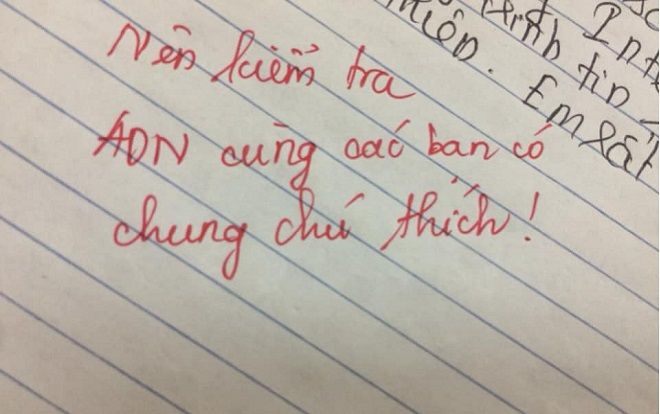 Nên kiểm tra
ADN cùng các bạn có
chung chú thích!
Int
tin
miên.
Em rất